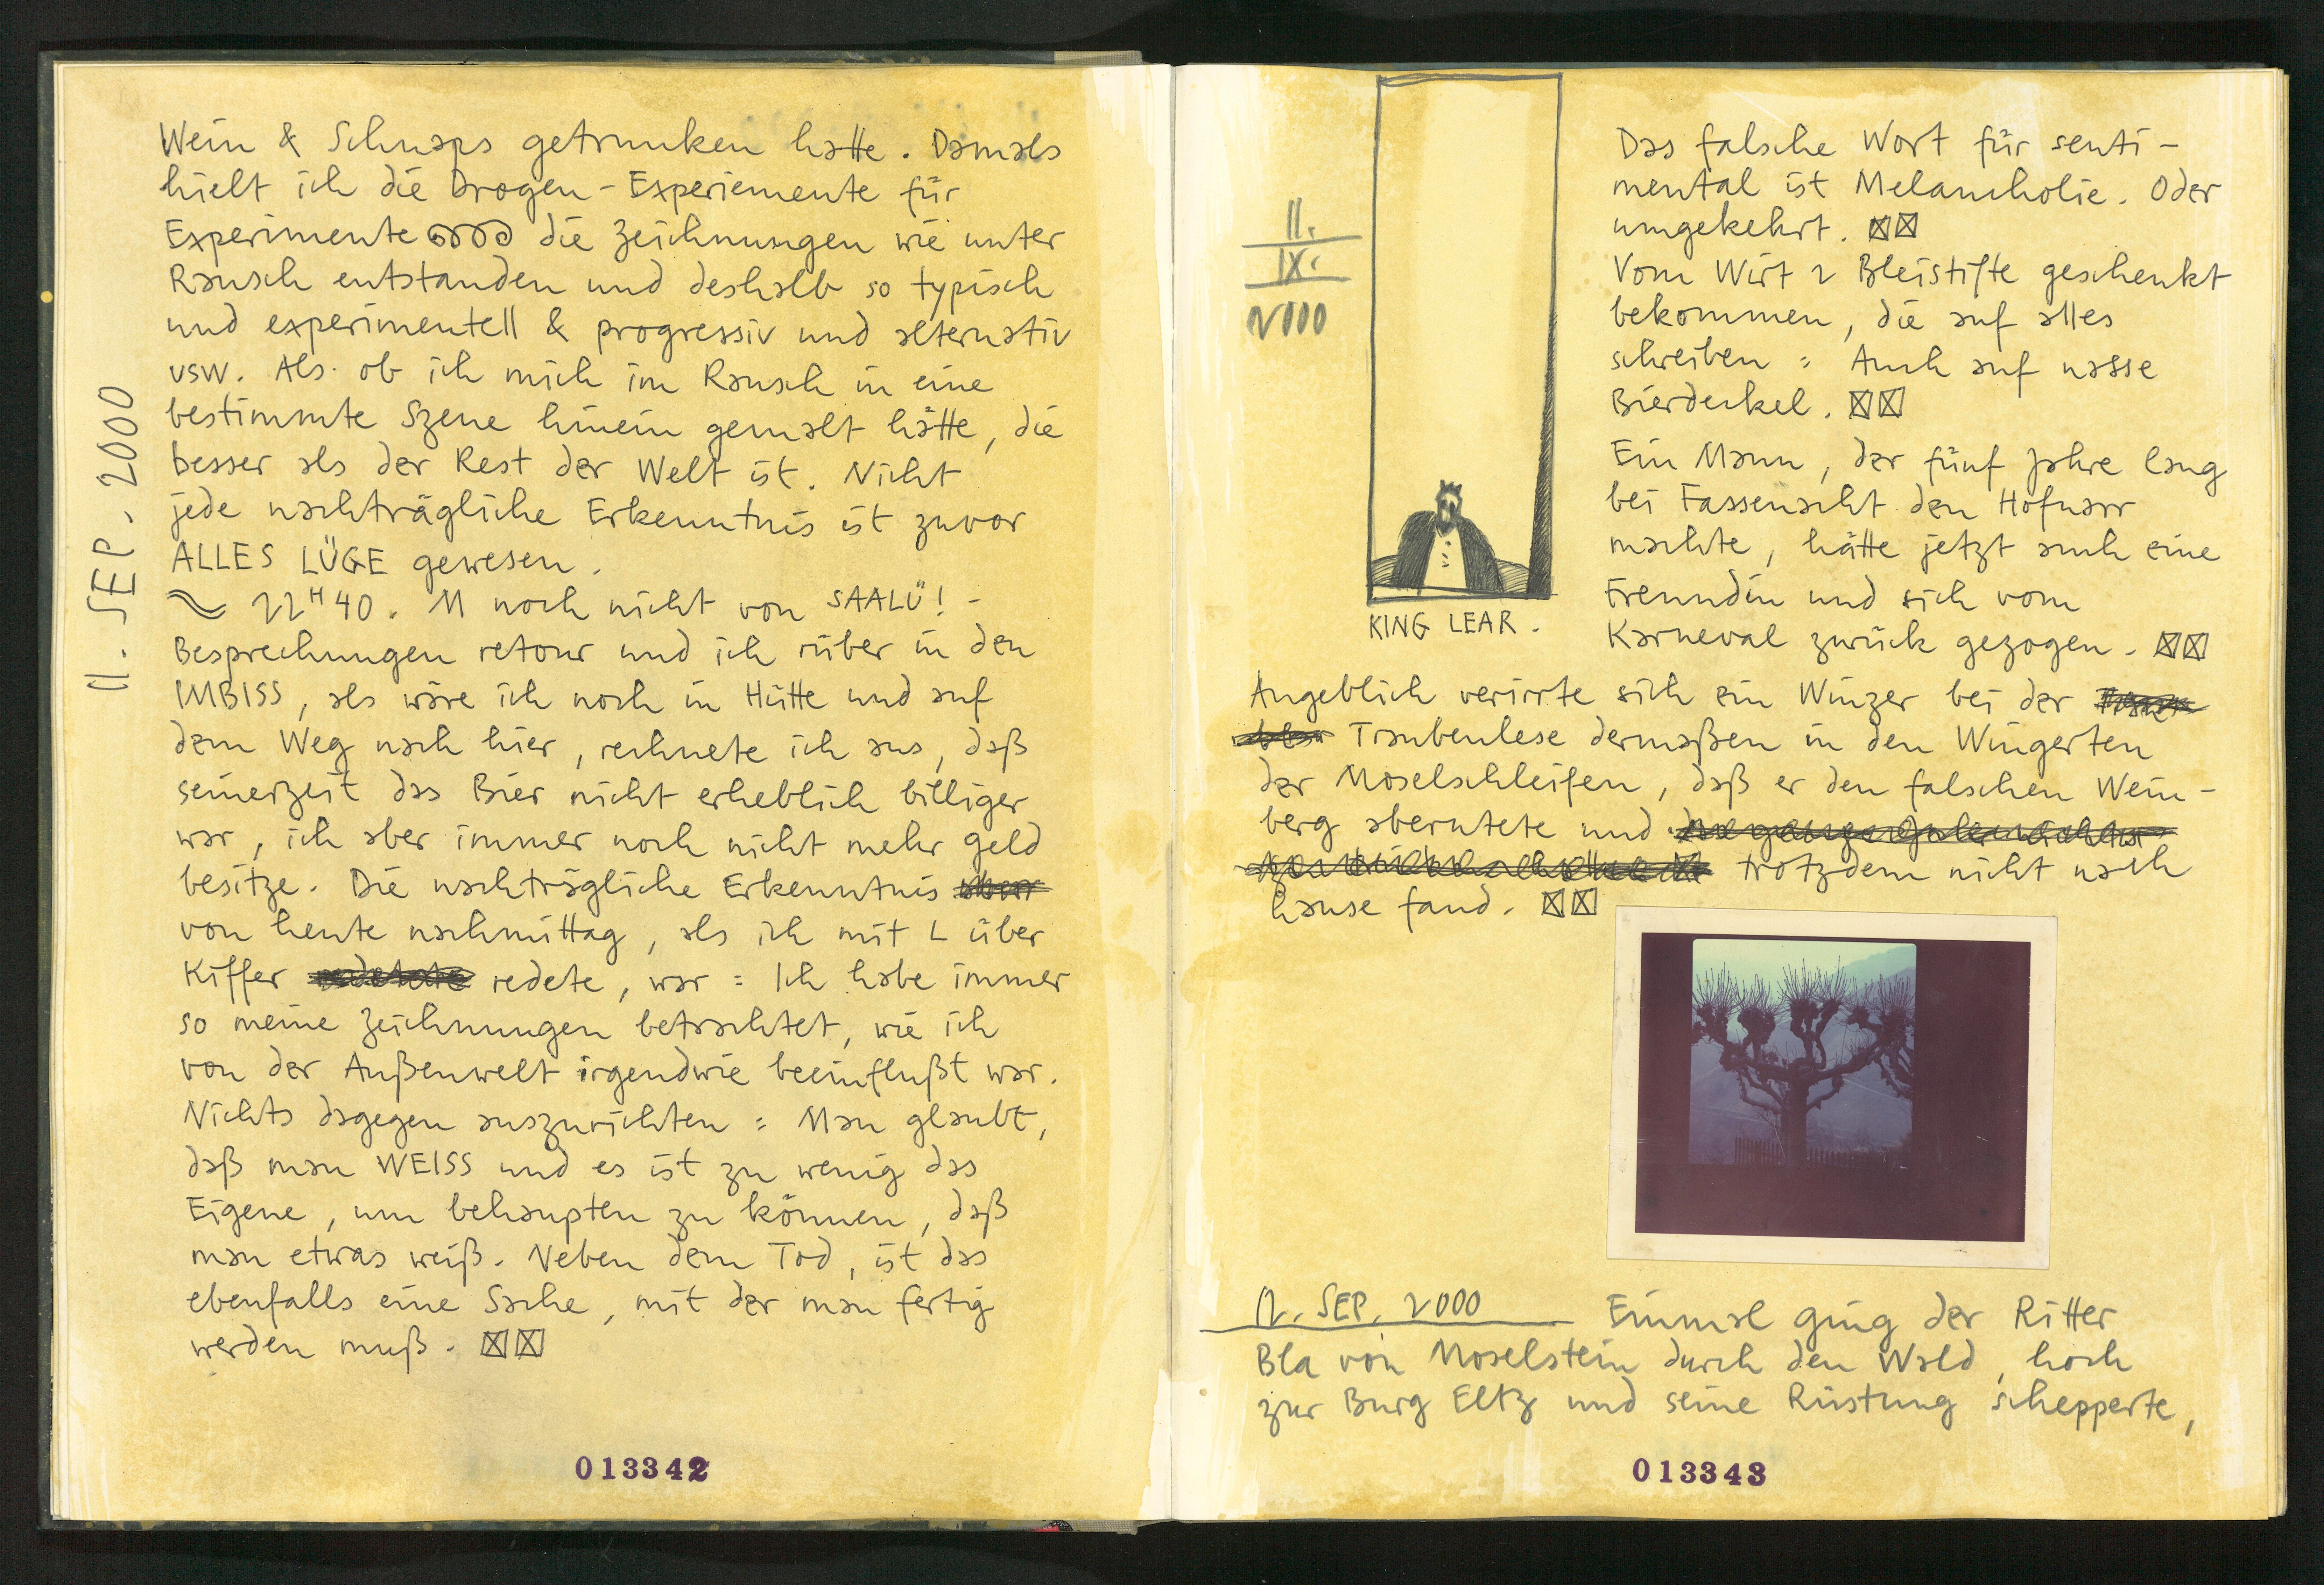 11. SEP. 2000
Wein & Schnaps getrunken hatte. Damals
hielt ich die Drogen-Experiemente für
Experimente die Zeichnungen wie unter
Rausch entstanden und deshalb so typisch
und experimentell & progressiv und alternativ
usw. Als ob ich mich im Rausch in eine
bestimmte Szene hinein gemalt hätte, die
besser als der Rest der Welt ist. Nicht
jede nachträgliche Erkenntnis ist zuvor
ALLES LÜGE gewesen.
22H40. M noch nicht von SAALÜ!-
Besprechungen retour und ich rüber in den
IMBISS, als wäre ich noch in Hütte und auf
dem Weg nach hier, rechnete ich aus, daß
seinerzeit das Bier nicht erheblich billiger
war, ich aber immer noch nicht mehr Geld
besitze. Die nachträgliche Erkenntnis
von heute nachmittag, als ich mit L über
Kiffer redete, war = Ich habe immer
so meine Zeichnungen betrachtet, wie ich
von der Außenwelt irgendwie beeinflußt war.
Nichts dagegen auszurichten = Man glaubt,
daß man WEISS und es ist zu wenig das
Eigene, um behaupten zu können, daß
man etwas weiß. Neben dem Tod, ist das
ebenfalls eine Sache, mit der man fertig
werden muß.
013342
11.
IX.
2000
KING LEAR.
Das falsche Wort für senti-
mental ist Melancholie. Oder
umgekehrt.
Vom Wirt 2 Bleistifte geschenkt
bekommen, die auf alles
schreiben = Auch auf nasse
Bierdeckel.
Ein Mann, der fünf Jahre lang
bei Fassenacht den Hofnarr
machte, hätte jetzt auch eine
Freundin und sich vom
Karneval zurück gezogen.
Angeblich verirrte sich ein Winzer bei der
Traubenlese dermaßen in den Wingerten
der Moselschleifen, daß er den falschen Wein-
berg aberntete und
trotzdem nicht nach
hause fand.
12. SEP. 2000 Einmal ging der Ritter
Bla von Moselstein durch den Wald, hoch
zur Burg Eltz und seine Rüstung schepperte,
013343